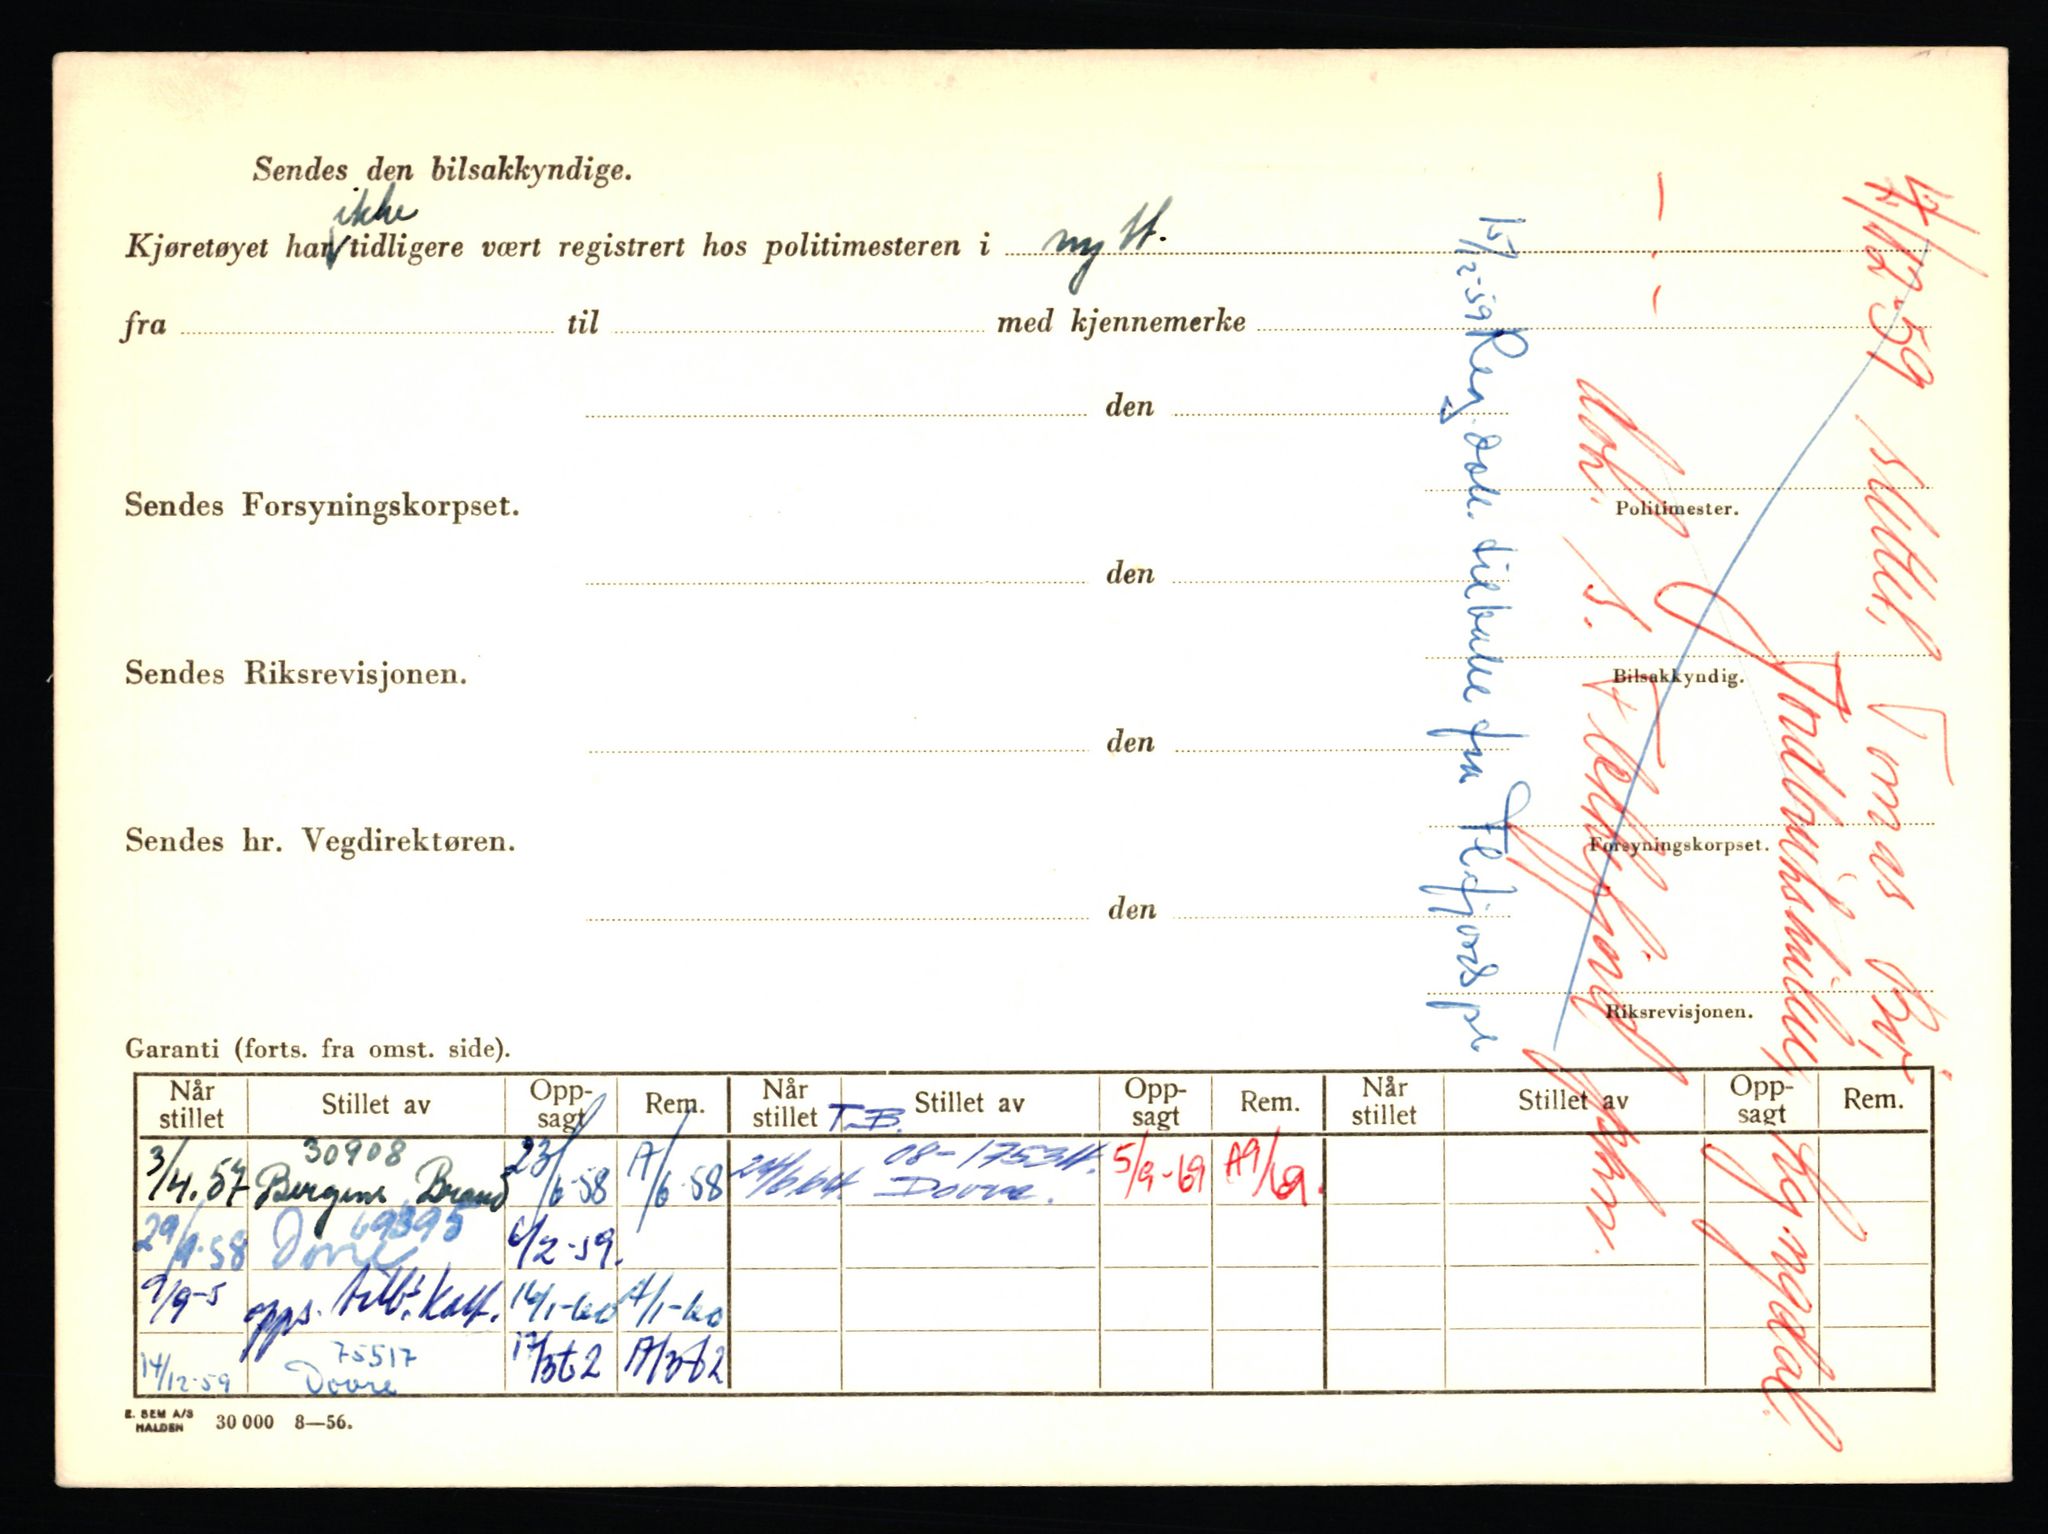 Sendes den bilsakkyndige.
ikke
Kjøretøyet har tidligere vært registrert hos politimesteren i nytt.
fra til med kjennemerke
den
Politimester.
Sendes Forsyningskorpset.
den
Bilsakkyndig.
Sendes Riksrevisjonen.
den
Forsyningskorpset.
Sendes hr. Vegdirektøren.
den
Riksrevisjonen.
15/12-59 Reg. dok. tilbake fra Flekkefjord
12-59
Tomas
dok. s. Flekkefjord
Garanti (forts. fra omst. side).
Når stillet Stillet av Opp-sagt Rem. Når stillet Stillet av Opp-sagt Rem. Når stillet Stillet av Opp-sagt Rem.
T.B.
3/4.57 30908 Bergens Brand 23/6-58 A/6-58 24/6.64. 08-17534. Dovre. 5/9-69 A9/69.
29/9-58 69395 Dovre 6/2-59.
9/9-5 opps. tilb. kalt. 14/1-60 A/1-60
14/12-59 75517 Dovre 17/3-62 A/3-62
E. SEM A/S HALDEN 30 000 8—56.